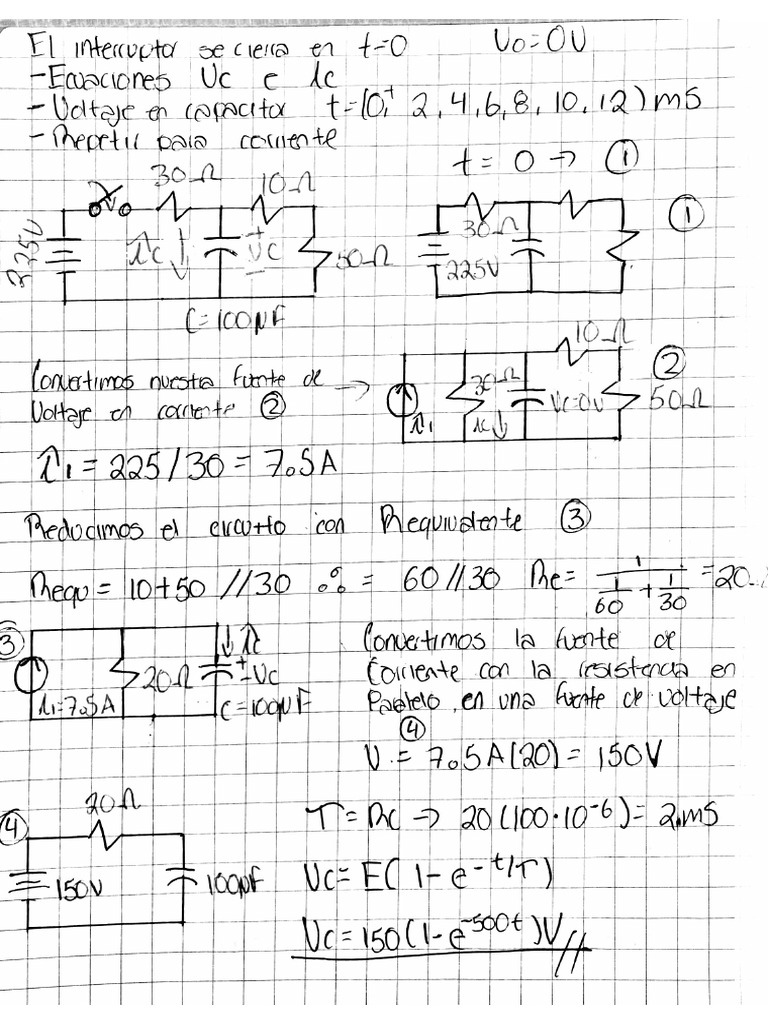 El interruptor se cierra en t=0 Vo=0V
-Ecuaciones Vc e ic
-Voltaje en capacitor t=(0,+ 2, 4, 6, 8, 10, 12)ms
-Repetir para corriente
t = 0 → ①
30Ω 10Ω
225V ic ↓ + Vc - 50Ω
C=100µF
30Ω 225V ①
Convertimos nuestra fuente de →
Voltaje en corriente ②
10Ω ②
i1 30Ω ic↓ Vc=0v 50Ω
i1 = 225/30 = 7.5A
Reducimos el circuito con Requivalente ③
Requ = 10+50 //30 ∴ = 60//30 Re = 1/(1/60 + 1/30) = 20
③ i1=7.5A 20Ω ↓ic + - Vc C=100µF
Convertimos la fuente de
Corriente con la resistencia en
Paralelo, en una fuente de voltaje
④
V = 7.5A(20) = 150V
④ 20Ω 150V 100µF
T = RC → 20(100·10^-6) = 2ms
Vc = E(1-e^-t/T)
Vc = 150(1-e^-500t)V//